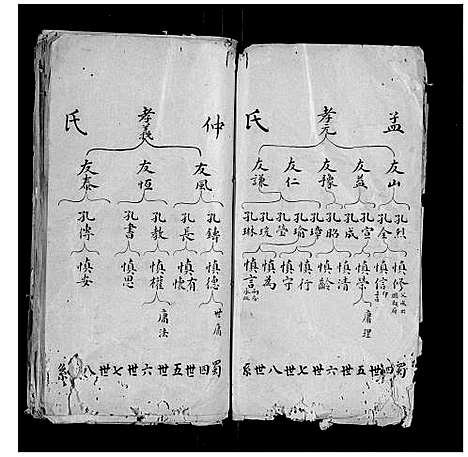 孟 孝元 氏
友山 友益 友豫 友仁 友謙
孔烈 孔金 孔宣 孔成 孔昭 孔璋 孔瑜 孔瑩 孔琰 孔琳
慎修 慎信 慎榮 慎清 慎齡 慎行 慎守 慎為 慎言
庸理
蜀四世五世六世七世八世系
仲 孝義 氏
友風 友恆 友泰
孔鑄 孔長 孔教 孔書 孔傳
慎德 慎有 慎懷 慎權 慎思 慎安
世庸 庸法
蜀四世五世六世七世八系